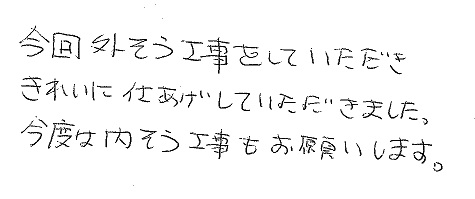 今回外そう工事をしていただき
きれいに仕あげしていただきました。
今度は内そう工事もお願いします。